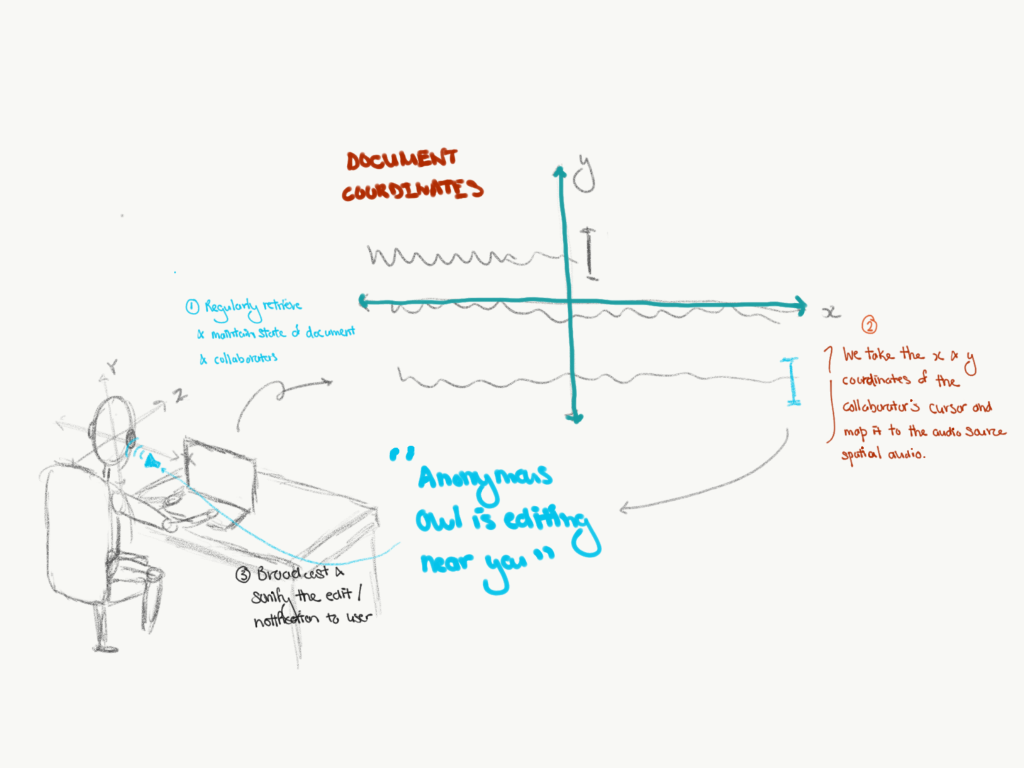 DOCUMENT
COORDINATES
y
x
① Regularly retrieve
& maintain state of document
& collaborators
②
We take the x & y
coordinates of the
collaborator's cursor and
map it to the audio source
spatial audio.
Y
Z
X
"Anonymous
Owl is editing
near you"
③ Broadcast &
sonify the edit/
notification to user